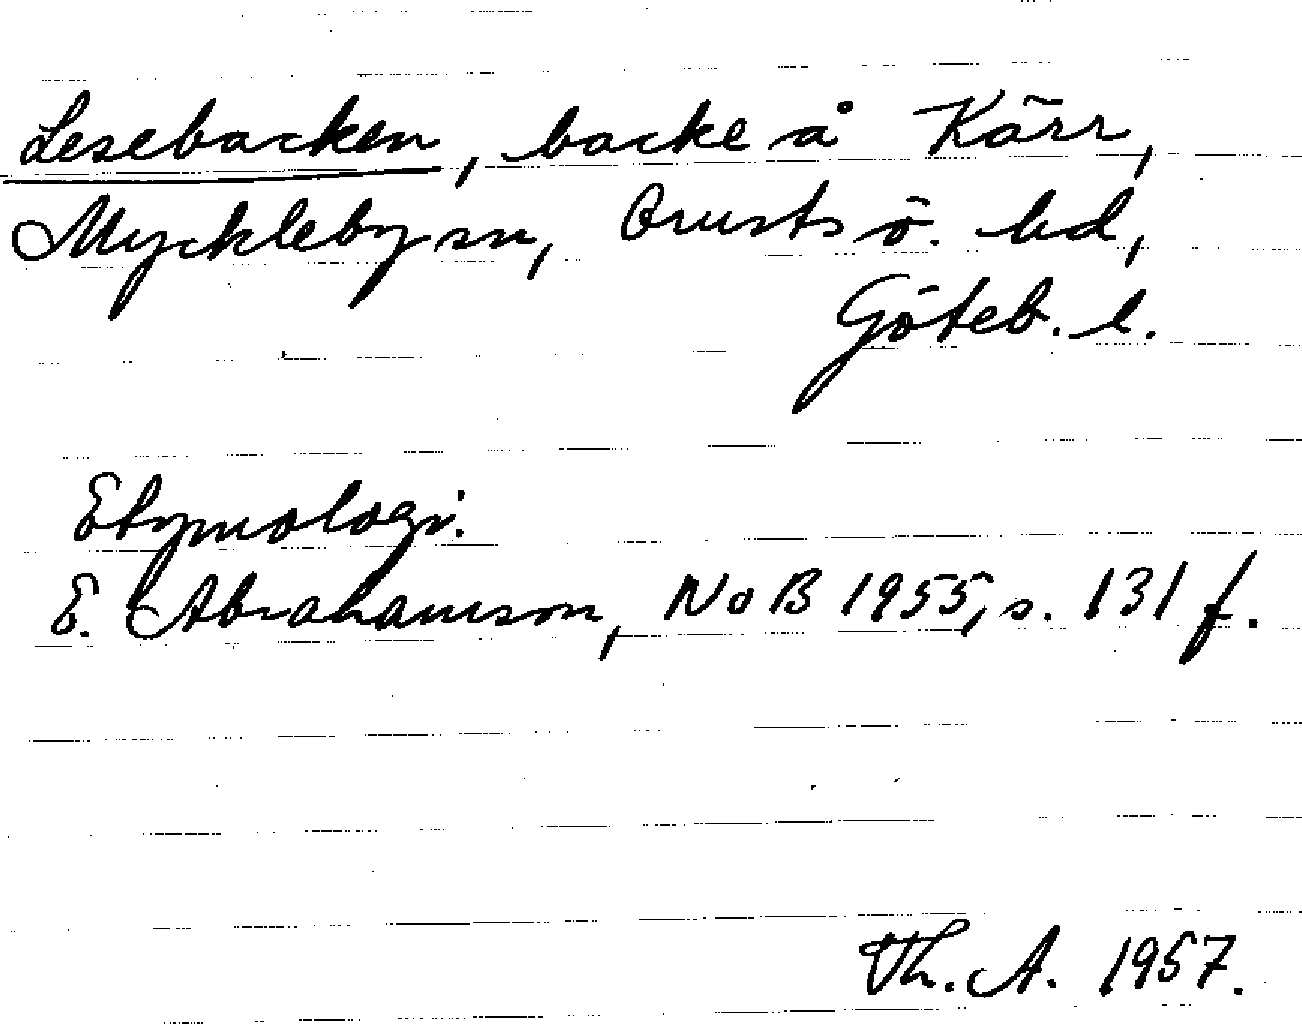 Lesebacken, backe å Kärr,
Myckleby sn, Orusts ö. hd,
Göteb. l.
Etymologi:
E. Abrahamson, NoB 1955, s. 131 f.
Th. A. 1957.